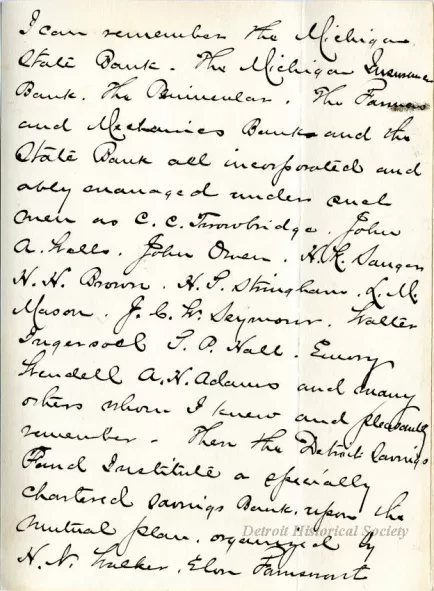 I can remember the Michigan
State Bank. The Michigan Insurance
Bank. The Peninsular. The Farmers
and Mechanics Bank and the
State Bank all incorporated and
ably managed under such
men as C. C. Trowbridge. John
A. Wells. John Owen. H. K. Sanger
H. N. Brown. H. S. Stringham. L. M.
Mason. J. C. W. Seymour. Walter
Ingersoll T. P. Hall. Emory
Wendell A. H. Adams and many
others whom I knew and pleasantly
remember. Then the Detroit Savings
Fund Institute a specially
chartered savings Bank, upon the
mutual plan. organized by
H. N. Walker, Elon Farnsworth
Detroit Historical Society